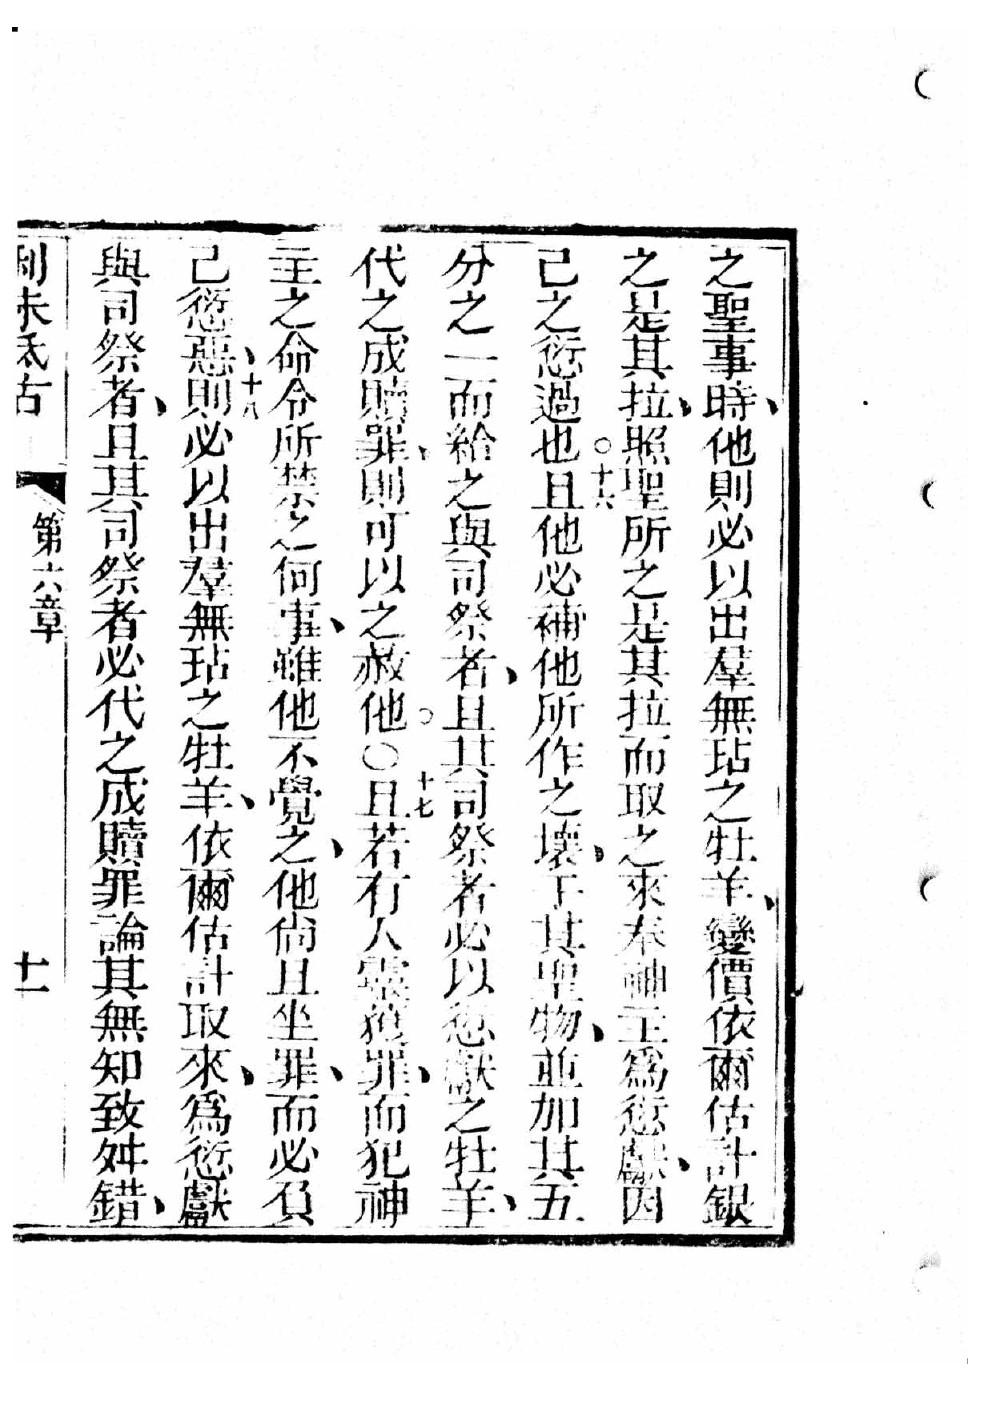 之聖事時、他則必以出羣無玷之牡羊、變價依爾估計銀
之是其拉、照聖所之是其拉而取之來奉神主爲愆獻、因
己之愆過也○十六且他必補他所作之壞、于其聖物、並加其五
分之一而給之與司祭者、且其司祭者必以愆獻之牡羊、
代之成贖罪、則可以之赦他。○十七且若有人靈犯罪、而犯神
主之命令所禁之何事、雖他不覺之、他尙且坐罪、而必負
己愆惡、十八則必以出羣無玷之牡羊、依爾估計取來、爲愆獻
與司祭者、且其司祭者必代之成贖罪論其無知致舛錯、
利未氐古 第六章 十一